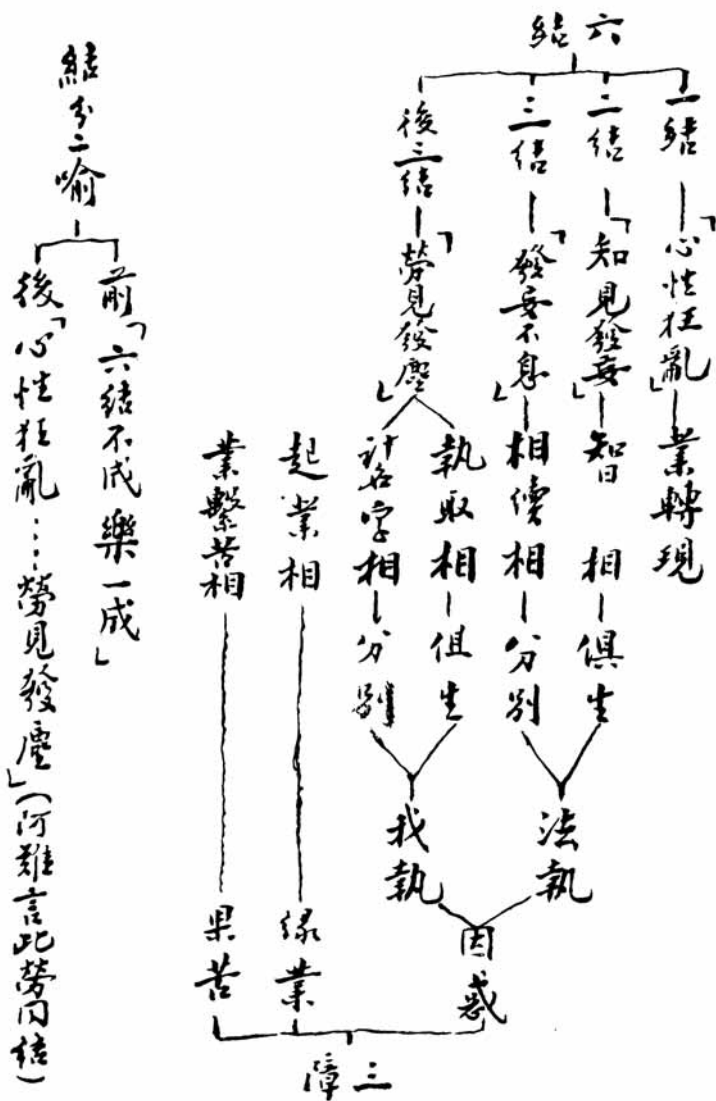 六結
一結「心性狂亂」業轉現
二結「知見發妄」智相 俱生
三結「發妄不息」相續相 分別
法執
後三結「勞見發塵」
執取相 俱生
計名字相 分別
我執
因惑
起業相 緣業
業繫苦相 果苦
三障
結分二喻
前「六結不成樂一成」
後「心性狂亂…勞見發塵」(阿難言此勞同結)